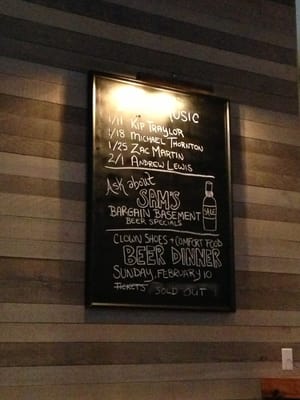 MUSIC
1/11 KIP TRAYLOR
1/18 MICHAEL THORNTON
1/25 ZAC MARTIN
2/1 ANDREW LEWIS
Ask about
SAM'S
BARGAIN BASEMENT
BEER SPECIALS
SALE
CLOWN SHOES + COMFORT FOOD
BEER DINNER
SUNDAY, FEBRUARY 10
TICKETS SOLD OUT